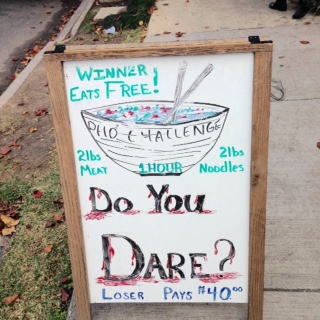 WINNER
EATS FREE!
PHO CHALLENGE
2lbs MEAT
1 HOUR
2lbs NOODLES
DO YOU
DARE?
LOSER PAYS $40.00